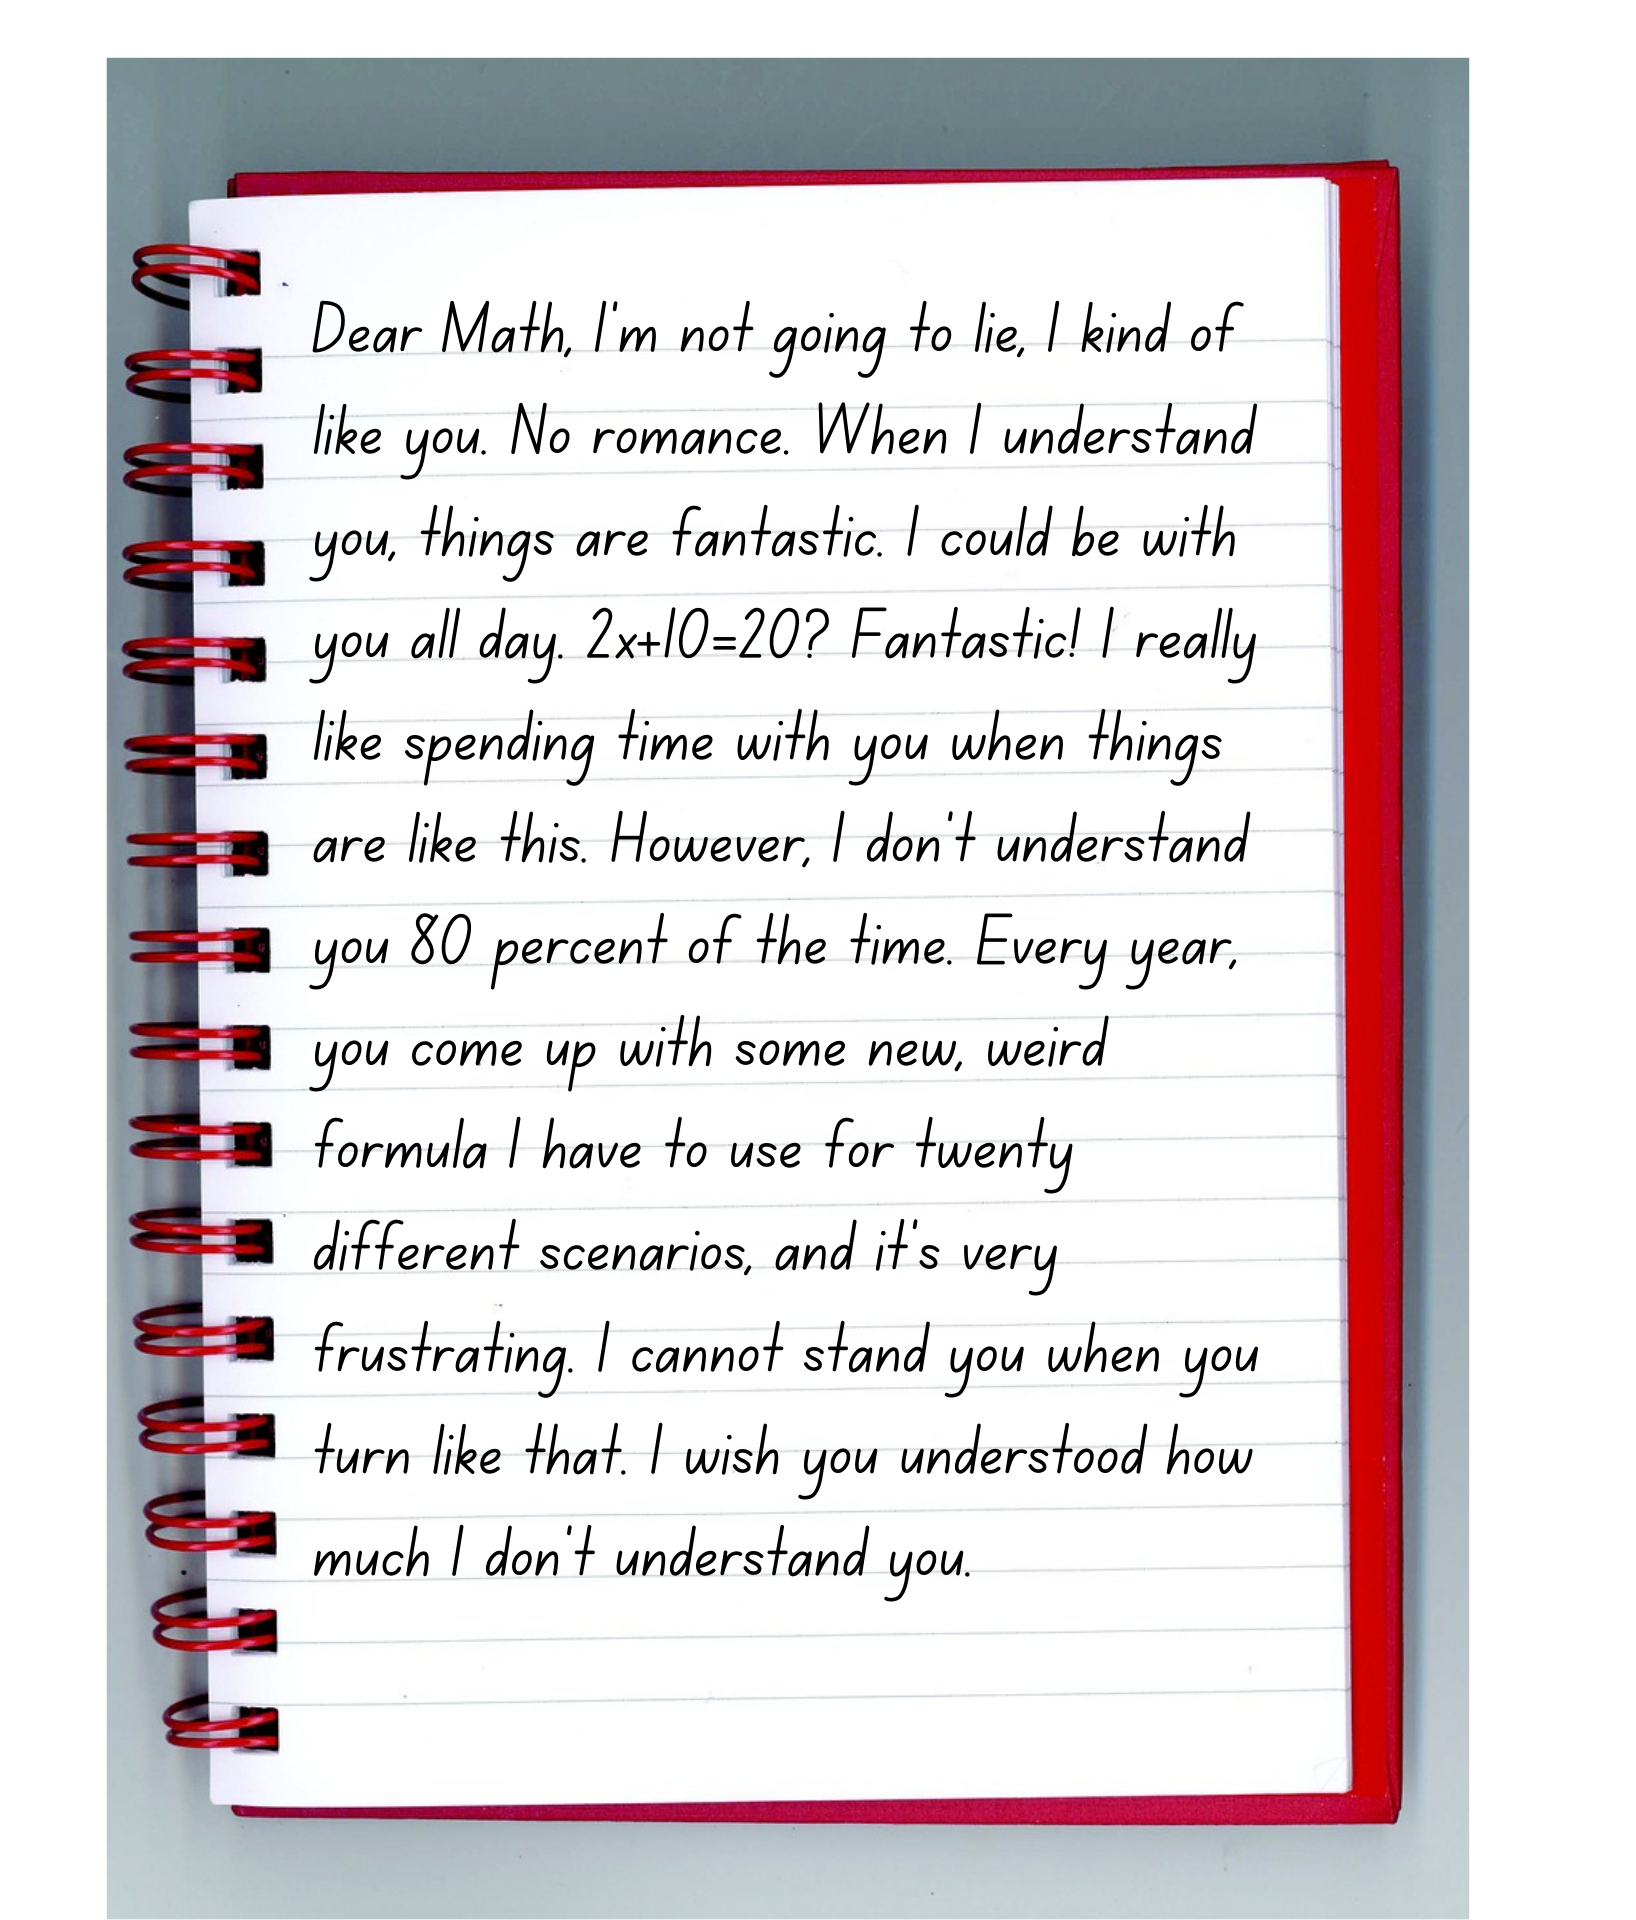 Dear Math, I'm not going to lie, I kind of
like you. No romance. When I understand
you, things are fantastic. I could be with
you all day. 2x+10=20? Fantastic! I really
like spending time with you when things
are like this. However, I don't understand
you 80 percent of the time. Every year,
you come up with some new, weird
formula I have to use for twenty
different scenarios, and it's very
frustrating. I cannot stand you when you
turn like that. I wish you understood how
much I don't understand you.